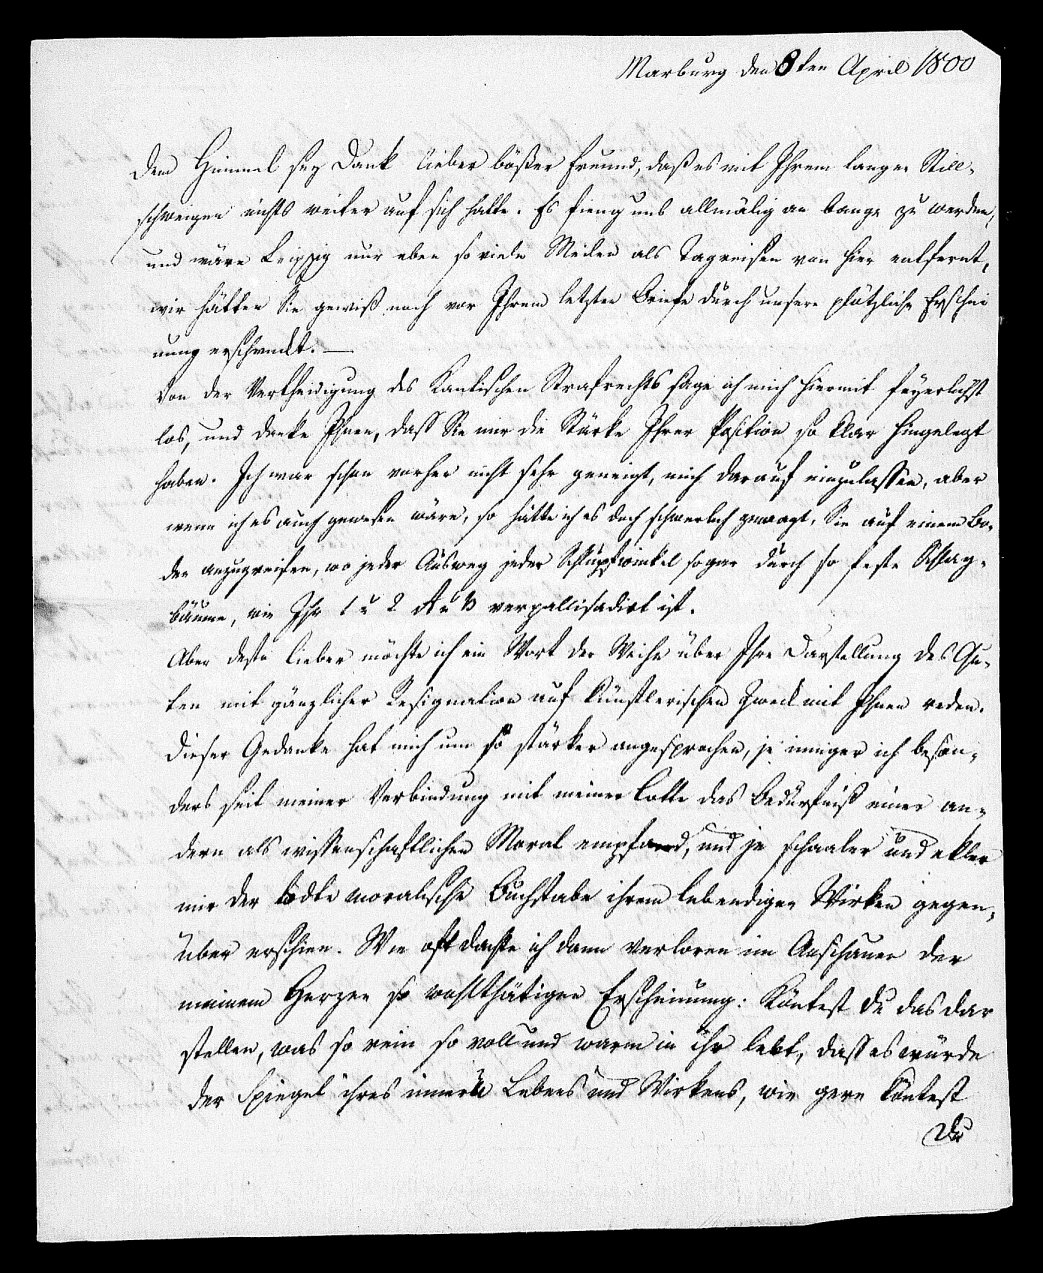 Marburg den 8ten April 1800
Dem Himmel sey Dank lieber böser Freund, daß es mit Ihrem langen Still-
schweigen nichts weiter auf sich hatte. Es fieng uns allmälig an bange zu werden,
und wäre Leipzig nur eben so viele Meilen als Tagreisen von hier entfernt,
wir hätten Sie gewiß noch vor Ihrem letzten Briefe durch unsere plötzliche Erschei
nung erschreckt. —
Von der Vertheidigung des Kantischen Strafrechts sage ich mich hiermit feyerlichst
los, und danke Ihnen, dass Sie mir die Stärke Ihrer Position so klar hingelegt
haben. Ich war schon vorher nicht sehr geneigt, mich darauf einzulassen, aber
wenn ich es auch gewesen wäre, so hätte ich es doch schwerlich gewagt, Sie auf einem Bo-
den anzugreifen, wo jeder Ausweg jeder Schlupfwinkel sogar durch so feste Schlag-
bäume, wie Ihr 1 u 2 A u B verpallisadirt ist.
Aber desto lieber möchte ich ein Wort der Weihe über Ihre Darstellung des Gu-
ten mit gänzlicher Resignation auf künstlerischen Zweck mit Ihnen reden.
Dieser Gedanke hat mich um so stärker angesprochen, je inniger ich beson-
ders seit meiner Verbindung mit meiner Lotte das Bedürfniß einer an-
dern als wissenschaftlichen Moral empfand, und je schaaler und ekler
mir der todte moralische Buchstabe ihrem lebendigen Wirken gegen-
über erschien. Wie oft dachte ich dann verloren im Anschauen der
meinem Herzen so wohlthätigen Erscheinung: Köntest Du das dar
stellen, was so rein so voll und warm in ihr lebt, dass es würde
der Spiegel ihres innern Lebens und Wirkens, wie gern köntest
Du